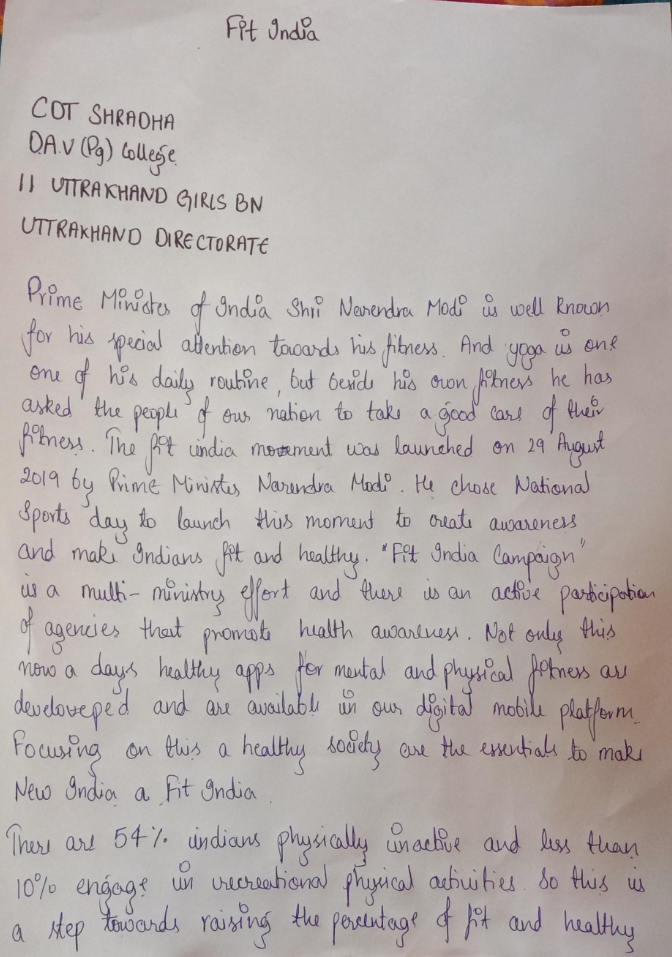 Fit India
CDT SHRADHA
D.A.V (Pg) College
11 UTTRAKHAND GIRLS BN
UTTRAKHAND DIRECTORATE
Prime Minister of India Shri Narendra Modi is well known
for his special attention towards his fitness. And yoga is one
one of his daily routine, but beside his own fitness he has
asked the people of our nation to take a good care of their
fitness. The fit india movement was launched on 29 August
2019 by Prime Minister Narendra Modi. He chose National
Sports day to launch this moment to create awareness
and make Indians fit and healthy. "Fit India Campaign"
is a multi-ministry effort and there is an active participation
of agencies that promote health awareness. Not only this
now a days healthy apps for mental and physical fitness are
develoveped and are available in our digital mobile platform.
Focusing on this a healthy society are the essentials to make
New India a Fit India.
There are 54% indians physically inactive and less than
10% engage in recreational physical activities. So this is
a step towards raising the percentage of fit and healthy